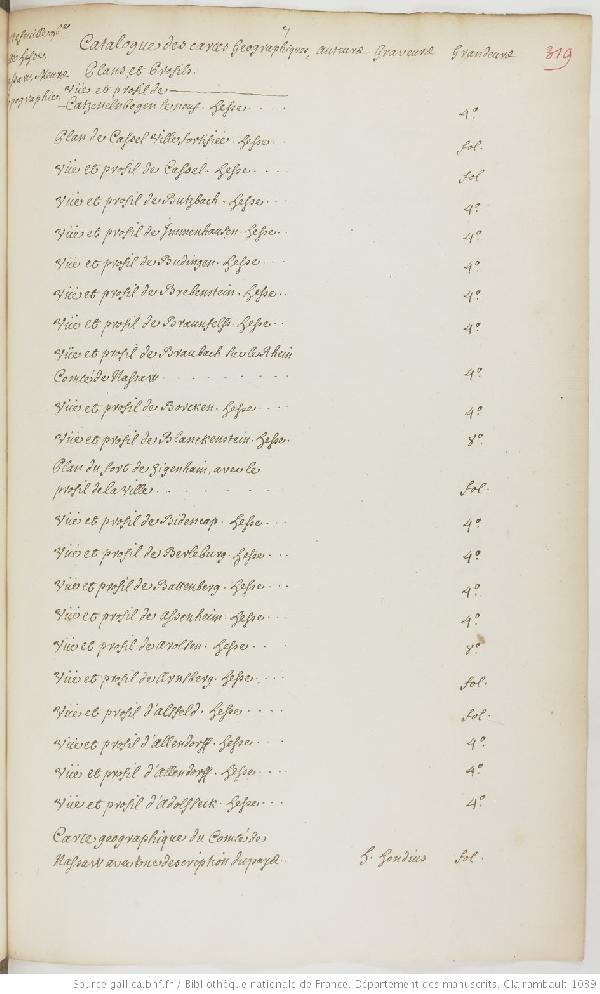 Catalogue des cartes Geographiques, auteurs Graveurs Grandeurs 319
Plans et Profils.
Hesse,
geographie,
Vüe et profil de
Catzenelnbogen le neuf. hesse 4º
Plan de Cassel Ville fortifiée. hesse fol.
Vüe et profil de Cassel. hesse fol
Vüe et profil de Butzbach. hesse 4º
Vüe et profil de Immenhausen. hesse 4º
Vüe et profil de Budingen. hesse 4º
Vüe et profil de Brebenstein. hesse 4º
Vüe et profil de Braunfelss. hesse 4º
Vüe et profil de Braubach sur le Rhein
Comté de Nassaw 4º
Vüe et profil de Borcken. hesse 4º
Vüe et profil de Blanckenstein. hesse. 8º
Plan du fort de Zigenhain, avec le
profil de la Ville fol.
Vüe et profil de Bidencap. hesse 4º
Vüe et profil de Berleburg. hesse 4º
Vüe et profil de Battenberg. hesse 4º
Vüe et profil de Assenheim. hesse 4º
Vüe et profil de Arolsen. hesse 8º
Vüe et profil de Arnsberg. hesse fol.
Vüe et profil d'alsfeld. hesse fol.
Vüe et profil d'allendorff. hesse 4º
Vüe et profil d'allendorff. hesse 4º
Vüe et profil d'adolfseck. hesse 4º
Carte geographique du Comté de
Nassaw avec une description du pays h. hondius fol.
Source gallica.bnf.fr / Bibliothèque nationale de France. Département des manuscrits. Clairambault 1039